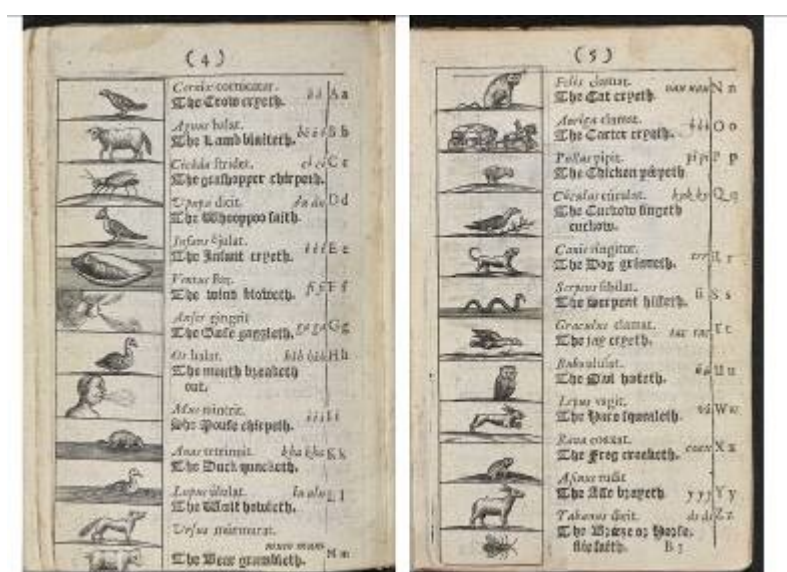 (4)
Cornix cornicatur. á á A a
The Crow cryeth.
Agnus balat. bé é é B b
The Lamb blaiteth.
Cicàda stridet. ci ci C c
The grasshopper chirpeth.
Upupa dicit. du du D d
The Whooppoo saith.
Infans éjulat. é é é E e
The Infant cryeth.
Ventus flat. fi fi F f
The wind bloweth.
Anser gingrit. ga ga G g
The Goose gaggleth.
Os halat. háh háh H h
The mouth breatheth
out.
Mus mintrit. í í í I i
The Mouse chirpeth.
Anas tetrinnit. kha kha K k
The Duck quacketh.
Lupus ululat. lu ulu L l
The Wolf howleth.
Ursus murmurat.
mum mum M m
The Bear grumbleth.
(5)
Felis clamat. nau nau N n
The Cat cryeth.
Auriga clamat. ó ó ó O o
The Carter cryeth.
Pullus pipit. pi pi P p
The Chicken péepeth.
Cúculus cúculat. kuk ku Q q
The Cuckow singeth
cuckow.
Canis ringitur. err R r
The Dog grinneth.
Serpens sibilat. si S s
The Serpent hisseth.
Graculus clamat. tac tac T t
The jay cryeth.
Bubo ululat. ú ú U u
The Owl hooteth.
Lepus vagit. vá W w
The Hare squeaketh.
Rana coaxat. coax X x
The Frog croaketh.
Asinus rudit. y y y Y y
The Asse brayeth.
Tabanus dicit. ds ds Z z
The Breeze or Horse-
flie saith. B 3